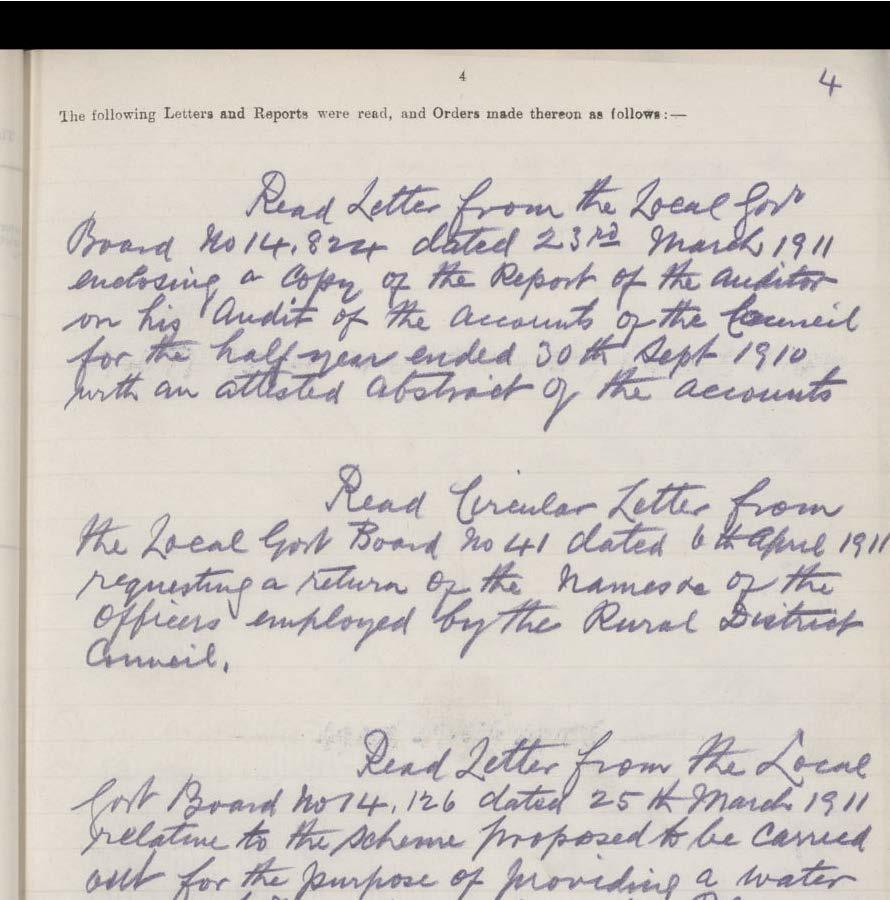 4
4
The following Letters and Reports were read, and Orders made thereon as follows:—
Read Letter from the Local Govt
Board No 14,824 dated 23rd March 1911
enclosing a Copy of the Report of the Auditor
on his Audit of the Accounts of the Council
for the half year ended 30th Sept 1910
with an attested Abstract of the Accounts
Read Circular Letter from
the Local Govt Board No 41 dated 6th April 1911
requesting a return of the Names &c of the
Officers employed by the Rural District
Council.
Read Letter from the Local
Govt Board No 14,126 dated 25th March 1911
relative to the Scheme proposed to be carried
out for the purpose of providing a water